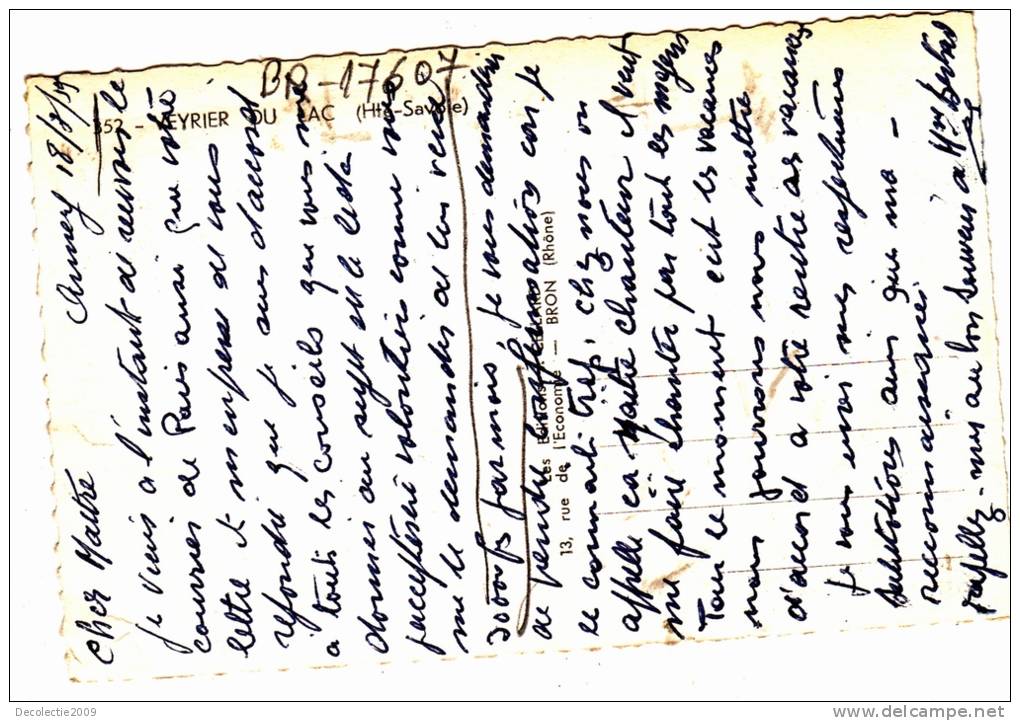 Annecy 18/8/59
Cher Maître
je viens a l'instant de recevoir le
courrier de Paris ainsi que votre
lettre et m'empresse de vous
repondre que je suis d'accord
a touts les conseils que vous me
donnez au sujet de
j'accepterai volontiers comme vous
me le demandez de lui verser
30000f par mois je vous demanderai
de prendre bonification car je
le connait trés, chez nous on
appelle ca Maître chanteur il veut
me faire chanter par tout les moyens
Pour le moment c'est les vacances
nous pourrons nous mettre
d'accord a votre rentré de vacances
je vous envoi mes respectueuses
salutations ainsi que ma
reconnaissance
rapellez-moi au bon souvenir de Mme
BR-17607
352 - VEYRIER DU LAC (Hte-Savoie)
Les Editions CELLARD
13, rue de l'Economie — BRON (Rhône)
Decolectie2009
www.delcampe.net